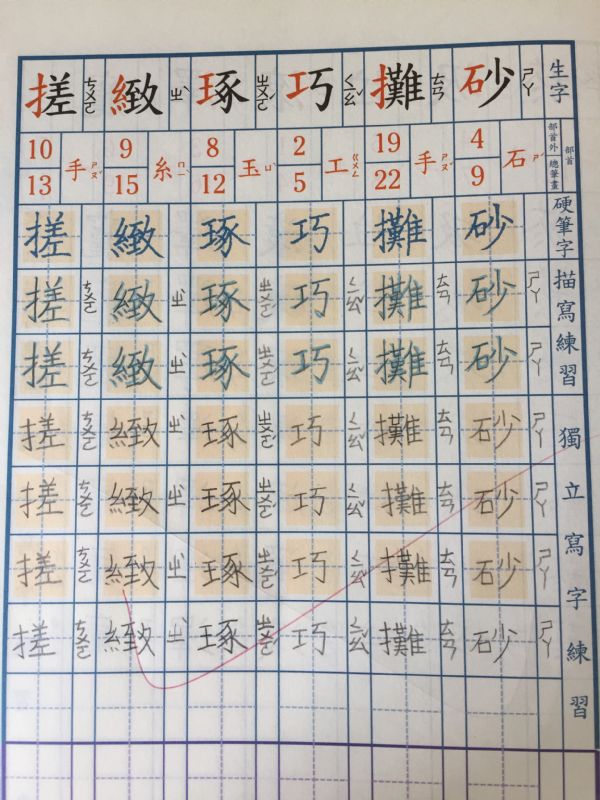 生字
部首外
總筆畫
部首
硬筆字
描寫練習
獨立寫字練習
砂 ㄕㄚ
4
9
石 ㄕˊ
砂
砂 ㄕㄚ
砂 ㄕㄚ
砂 ㄕㄚ
砂 ㄕㄚ
砂 ㄕㄚ
砂 ㄕㄚ
攤 ㄊㄢ
19
22
手 ㄕㄡˇ
攤
攤 ㄊㄢ
攤 ㄊㄢ
攤 ㄊㄢ
攤 ㄊㄢ
攤 ㄊㄢ
攤 ㄊㄢ
巧 ㄑㄧㄠˇ
2
5
工 ㄍㄨㄥ
巧
巧 ㄑㄧㄠˇ
巧 ㄑㄧㄠˇ
巧 ㄑㄧㄠˇ
巧 ㄑㄧㄠˇ
巧 ㄑㄧㄠˇ
巧 ㄑㄧㄠˇ
琢 ㄓㄨㄛˊ
8
12
玉 ㄩˋ
琢
琢 ㄓㄨㄛˊ
琢 ㄓㄨㄛˊ
琢 ㄓㄨㄛˊ
琢 ㄓㄨㄛˊ
琢 ㄓㄨㄛˊ
琢 ㄓㄨㄛˊ
緻 ㄓˋ
9
15
糸 ㄇㄧˋ
緻
緻 ㄓˋ
緻 ㄓˋ
緻 ㄓˋ
緻 ㄓˋ
緻 ㄓˋ
緻 ㄓˋ
搓 ㄘㄨㄛ
10
13
手 ㄕㄡˇ
搓
搓 ㄘㄨㄛ
搓 ㄘㄨㄛ
搓 ㄘㄨㄛ
搓 ㄘㄨㄛ
搓 ㄘㄨㄛ
搓 ㄘㄨㄛ